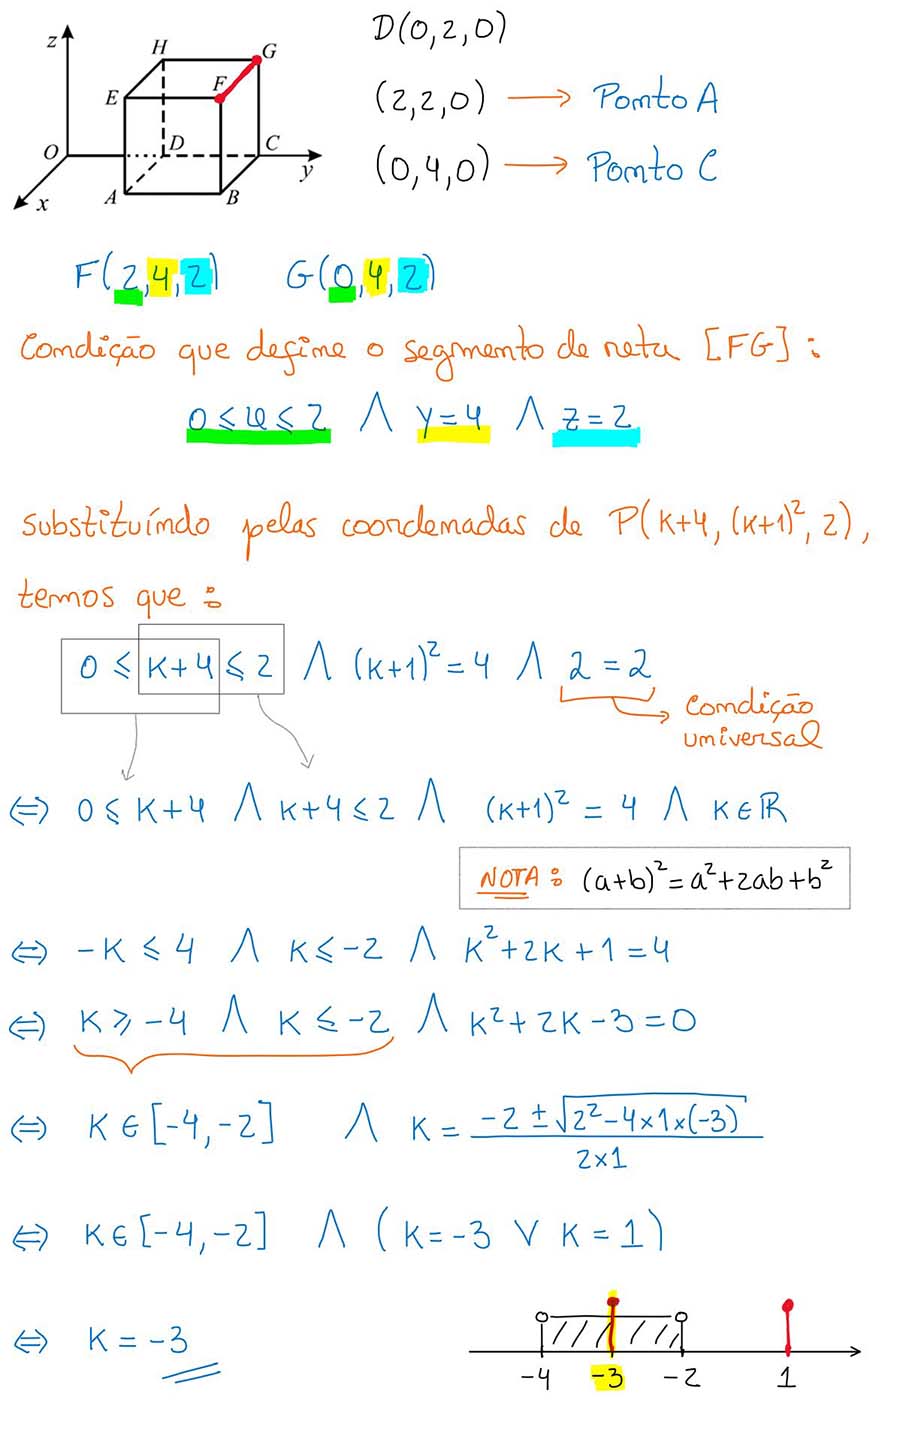 z
H
G
F
E
D
C
O
y
A
B
x
D(0,2,0)
(2,2,0) → Ponto A
(0,4,0) → Ponto C
F(2,4,2) G(0,4,2)
Condição que define o segmento de reta [FG]:
0 ≤ x ≤ 2 ∧ y = 4 ∧ z = 2
substituíndo pelas coordenadas de P(K+4, (K+1)², 2),
temos que:
0 ≤ K+4 ≤ 2 ∧ (K+1)² = 4 ∧ 2 = 2
Condição
universal
⇔ 0 ≤ K+4 ∧ K+4 ≤ 2 ∧ (K+1)² = 4 ∧ K ∈ ℝ
NOTA: (a+b)² = a²+2ab+b²
⇔ -K ≤ 4 ∧ K ≤ -2 ∧ K²+2K+1 = 4
⇔ K ≥ -4 ∧ K ≤ -2 ∧ K²+2K-3 = 0
⇔ K ∈ [-4,-2] ∧ K = (-2 ± √(2²-4×1×(-3)))/(2×1)
⇔ K ∈ [-4,-2] ∧ (K = -3 ∨ K = 1)
⇔ K = -3
-4 -3 -2 1